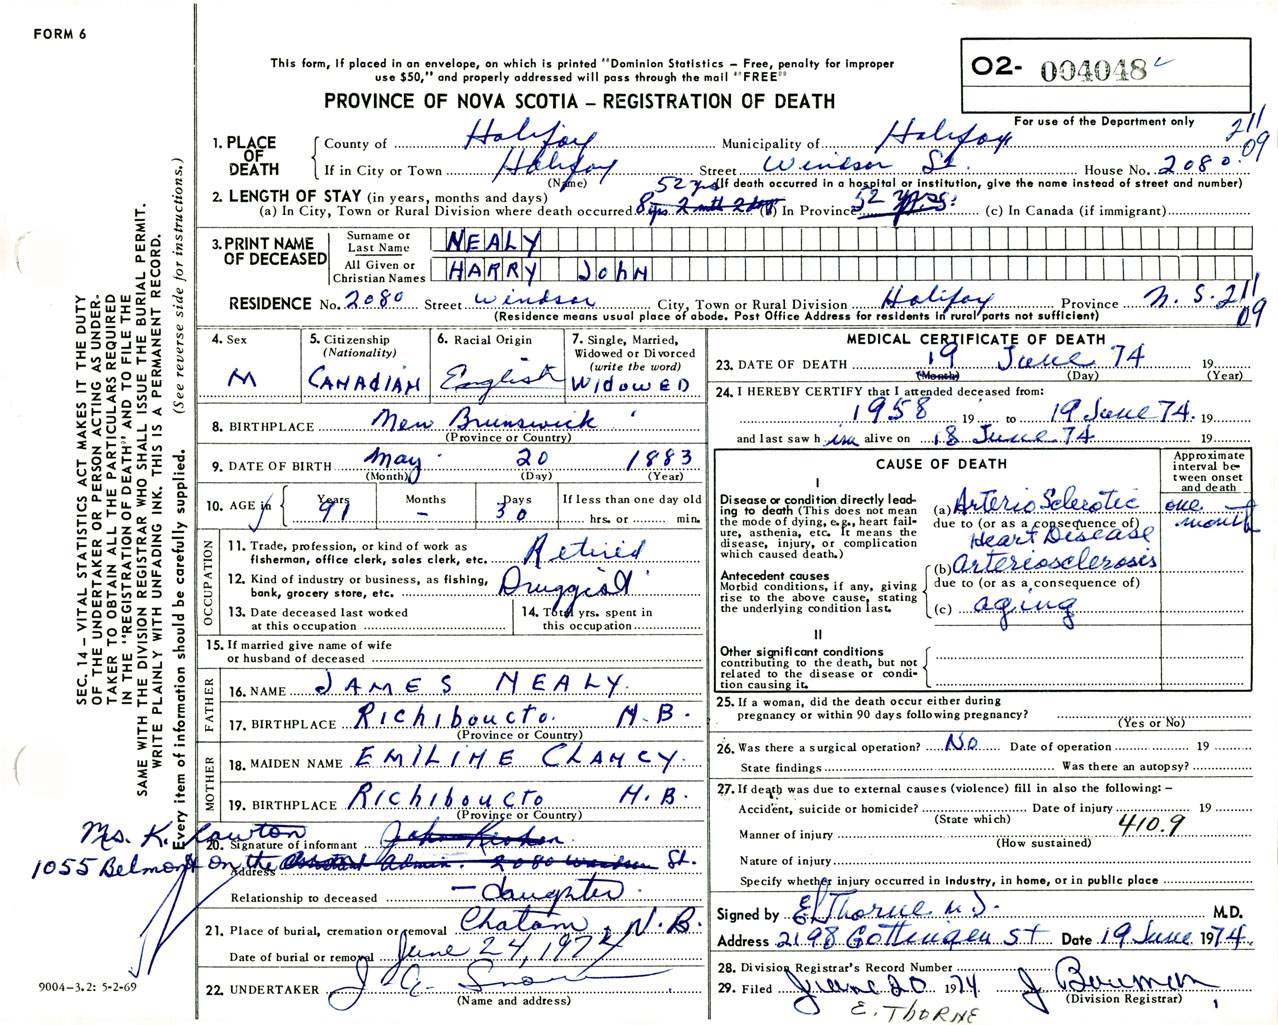 FORM 6
This form, if placed in an envelope, on which is printed "Dominion Statistics – Free, penalty for improper
use $50," and properly addressed will pass through the mail "FREE"
PROVINCE OF NOVA SCOTIA – REGISTRATION OF DEATH
O2- 004048
For use of the Department only
211
09
1. PLACE OF DEATH
County of Halifax Municipality of Halifax
If in City or Town Halifax Street Windsor St. House No. 2080
(Name) (If death occurred in a hospital or institution, give the name instead of street and number)
2. LENGTH OF STAY (in years, months and days)
52 yrs
(a) In City, Town or Rural Division where death occurred 8 yrs 2 mth 2 day (b) In Province 52 yrs. (c) In Canada (if immigrant)
3. PRINT NAME OF DECEASED
Surname or Last Name NEALY
All Given or Christian Names HARRY JOHN
RESIDENCE No. 2080 Street Windsor City, Town or Rural Division Halifax Province N. S. 211
09
(Residence means usual place of abode. Post Office Address for residents in rural parts not sufficient)
4. Sex M
5. Citizenship (Nationality) CANADIAN
6. Racial Origin English
7. Single, Married, Widowed or Divorced (write the word) WIDOWED
8. BIRTHPLACE New Brunswick
(Province or Country)
9. DATE OF BIRTH May 20 1883
(Month) (Day) (Year)
10. AGE in Years 91 Months – Days 30 If less than one day old hrs. or min.
OCCUPATION
11. Trade, profession, or kind of work as
fisherman, office clerk, sales clerk, etc. Retired
12. Kind of industry or business, as fishing,
bank, grocery store, etc. Druggist
13. Date deceased last worked
at this occupation
14. Total yrs. spent in
this occupation
15. If married give name of wife
or husband of deceased
FATHER
16. NAME JAMES NEALY.
17. BIRTHPLACE RICHIBOUCTO. N.B.
(Province or Country)
MOTHER
18. MAIDEN NAME EMILINE CLANCY.
19. BIRTHPLACE RICHIBOUCTO N.B.
(Province or Country)
Ms. K. Lawton
20. Signature of informant
1055 Belmont on the
Address 2080 Windsor St.
Relationship to deceased – daughter
21. Place of burial, cremation or removal Chatam, N.B.
Date of burial or removal June 24, 1974
22. UNDERTAKER J E Snow
(Name and address)
MEDICAL CERTIFICATE OF DEATH
23. DATE OF DEATH 19 June 74 19
(Month) (Day) (Year)
24. I HEREBY CERTIFY that I attended deceased from:
1958 19 to 19 June 74. 19
and last saw him alive on 18 June 74 19
CAUSE OF DEATH
Approximate interval between onset and death
I
Disease or condition directly leading to death (This does not
mean the mode of dying, e.g., heart failure, asthenia, etc. It means the
disease, injury, or complication
which caused death.)
(a) Arterio Sclerotic one month
due to (or as a consequence of)
Heart Disease
Antecedent causes
Morbid conditions, if any, giving
rise to the above cause, stating
the underlying condition last.
(b) Arteriosclerosis
due to (or as a consequence of)
(c) aging
II
Other significant conditions
contributing to the death, but not
related to the disease or condition causing it.
25. If a woman, did the death occur either during
pregnancy or within 90 days following pregnancy?
(Yes or No)
26. Was there a surgical operation? No Date of operation 19
State findings Was there an autopsy?
27. If death was due to external causes (violence) fill in also the following: –
Accident, suicide or homicide? Date of injury 19
(State which)
Manner of injury 410.9
(How sustained)
Nature of injury
Specify whether injury occurred in industry, in home, or in public place
Signed by E Thorne M.D. M.D.
Address 2198 Gottingen St Date 19 June 1974
28. Division Registrar's Record Number
29. Filed June 20 1974 J Bowman
(Division Registrar)
E. THORNE
SEC. 14 – VITAL STATISTICS ACT MAKES IT THE DUTY
OF THE UNDERTAKER OR PERSON ACTING AS UNDERTAKER TO OBTAIN ALL THE PARTICULARS REQUIRED
IN THE "REGISTRATION OF DEATH" AND TO FILE THE
SAME WITH THE DIVISION REGISTRAR WHO SHALL ISSUE THE BURIAL PERMIT.
WRITE PLAINLY WITH UNFADING INK. THIS IS A PERMANENT RECORD.
Every item of information should be carefully supplied. (See reverse side for instructions.)
9004-3.2: 5-2-69